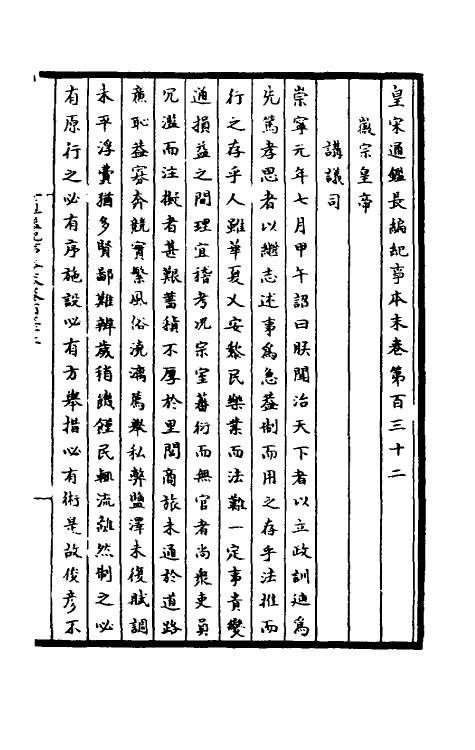 皇宋通鑑長編紀事本末卷第百三十二
徽宗皇帝
講議司
崇寧元年七月甲午詔曰朕聞治天下者以立政訓迪爲
先篤孝思者以繼志述事爲急葢制而用之存乎法推而
行之存乎人雖華夏乂安黎民樂業而法難一定事貴變
通損益之間理宜稽考况宗室蕃衍而無官者尚衆吏員
冗濫而注擬者甚艱蓄積不厚於里閭商旅未通於道路
廉恥葢寡奔競實繁風俗澆漓薦舉私弊鹽澤未復賦調
未平浮費猶多賢鄙難辨歲稍饑饉民輒流離然制之必
有原行之必有序施設必有方舉措必有術是故俊彦不